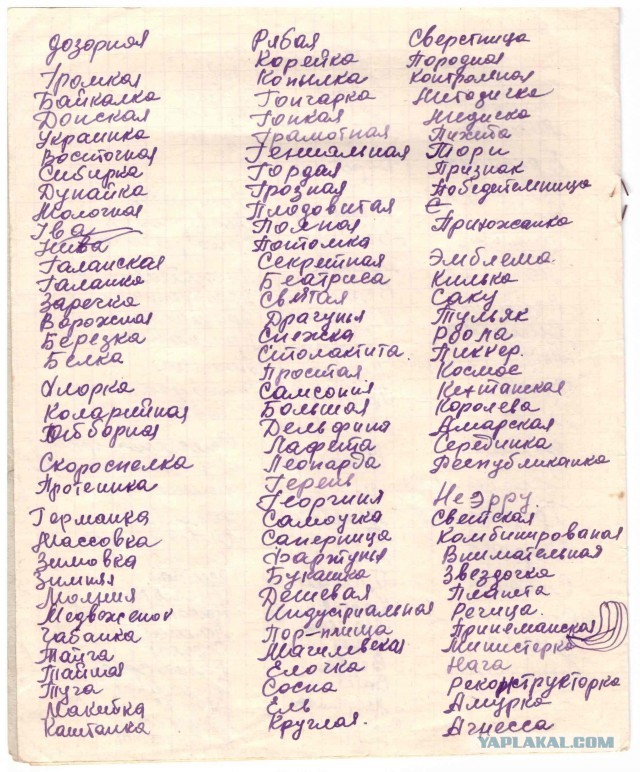 Дозорная
Громкая
Байкалка
Донская
Украинка
Восточная
Сибирка
Дунайка
Молочная
Ива
Нива
Галанская
Галанка
Заречка
Ворожная
Березка
Белка
Хлорка
Коларийная
Отборная
Скороспелка
Протешка
Германка
Массовка
Зимовка
Зимняя
Молния
Чабанка
Тайга
Тайна
Туга
Макитка
Каштанка
Рябая
Корейка
Копылка
Гончарка
Гонкая
Грамотная
Гениальная
Гордая
Грозная
Плодовитая
Полная
Потомка
Секретная
Беатриса
Святая
Драгунья
Снежка
Столактита.
Простая
Самсония
Большая
Дельфина
Лафета
Леонарда
Герень
Георгиня
Самоучка
Саперница
Фартунья
Букашка
Дешевая
Индустриальная
Пор-птица
Магилевская
Елочка
Сосна
Ель
Круглая.
Сверстница
Породная
Контральная
Методичка
Медиска
Пихета
Тори
Признак
Победительница
С
Прийожанка
Эмблема.
Килька
Саку
Тульяк
Рвола
Пиккер.
Космос
Кентанская
Королева
Амарская
Серединка
Республиканка
Неэрру.
Светская
Комбинированая
Внимательная
Звездочка
Планта
Речица.
Принеманская
Министерка
Нага
Реконструкторка
Амурка
Агнесса
YAPLAKAL.COM